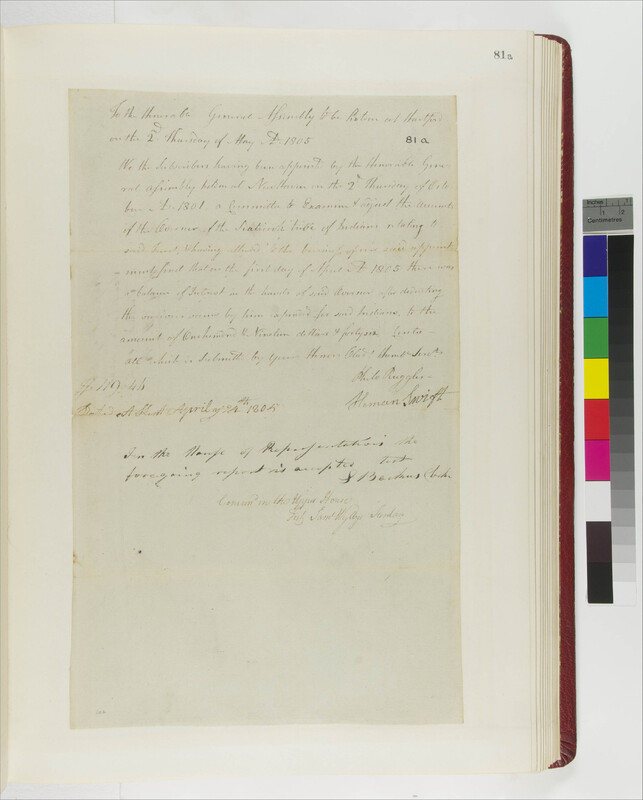 81a
To the Honorable General Assembly to be holden at Hartford
on the 2d Thursday of May AD 1805
81a
We the Subscribers having been appointed by the Honorable Gene-
ral assembly holden at Newhaven on the 2d Thursday of Octo
ber AD 1801 a Committee to Examine & adjust the accounts
of the Overseer of the Scaticook tribe of Indians relating to
said trust, & having attended to the business of our said appoint
ment find that on the first day of April AD 1805 there was
a balance of Interest in the hands of said Overseer after deducting
the various sums by him expended for said Indians, to the
amount of One hundred & Nineteen dollars & fortysix Cents
All which is Submitted by your Honors Obedt Humble Servts
Philo Ruggles
Heman Swift
$119.46
Dated at Kent April 9th 1805
In the House of Representatives the
foregoing report is accepted test
Backus Clerk
Concurd in the Upper House
Test Saml Wyllys Secretary